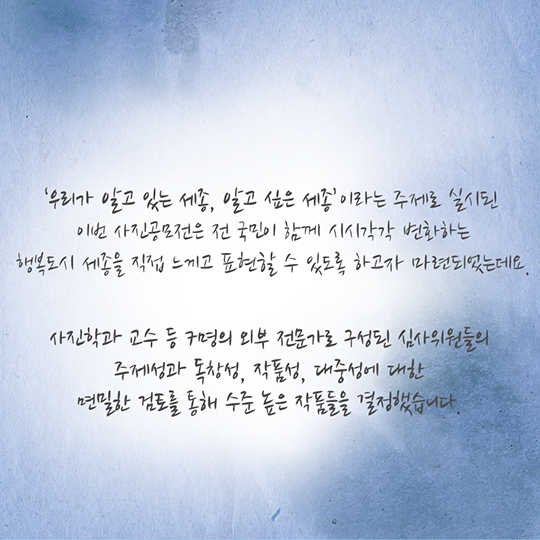 '우리가 알고 있는 세종, 알고 싶은 세종'이라는 주제로 실시된
이번 사진공모전은 전 국민이 함께 시시각각 변화하는
행복도시 세종을 직접 느끼고 표현할 수 있도록 하고자 마련되었는데요.
사진학과 교수 등 7명의 외부 전문가로 구성된 심사위원들의
주제성과 독창성, 작품성, 대중성에 대한
면밀한 검토를 통해 수준 높은 작품들을 결정했습니다.